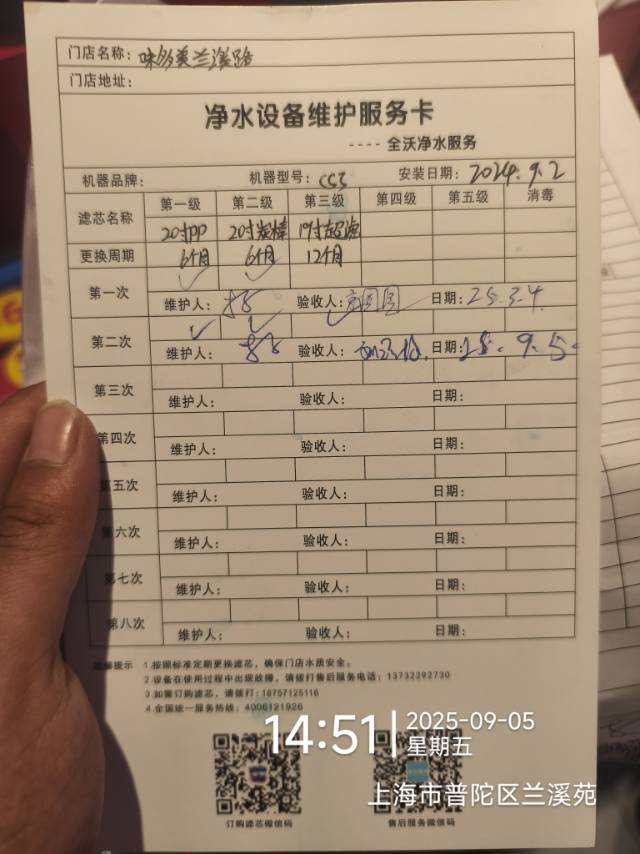 门店名称：味多美兰溪路
门店地址：
净水设备维护服务卡
---- 全沃净水服务
机器品牌： 机器型号：CC3 安装日期：2024.9.2
滤芯名称 第一级 第二级 第三级 第四级 第五级 消毒
20寸PP 20寸炭棒 19寸超滤
更换周期 6个月 6个月 12个月
第一次 ✓ ✓
维护人： 验收人： 日期：25.3.4
第二次 ✓ ✓ ✓
维护人： 验收人： 日期：25.9.5
第三次
维护人： 验收人： 日期：
第四次
维护人： 验收人： 日期：
第五次
维护人： 验收人： 日期：
第六次
维护人： 验收人： 日期：
第七次
维护人： 验收人： 日期：
第八次
维护人： 验收人： 日期：
提示 1.按照标准定期更换滤芯，确保门店水质安全。
2.设备在使用过程中出现故障，请拨打售后服务电话：13732292730
3.如需订购滤芯，请拨打：18757125116
4.全国统一服务热线：4006121926
14:51 2025-09-05
星期五
上海市普陀区兰溪苑
订购滤芯微信码 售后服务微信码